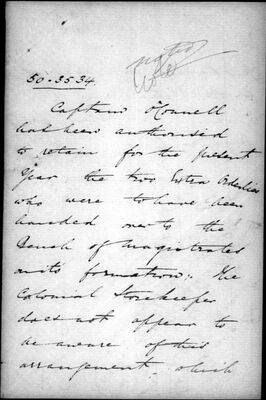 noted
50.35.34.
Captain O'Connell
has been authorised
to retain for the present
Year the two Extra Orderlies
who were to have been
handed over to the
Bench of Magistrates
on its formation; The
Colonial Storekeeper
does not appear to
be aware of this
arrangement, which